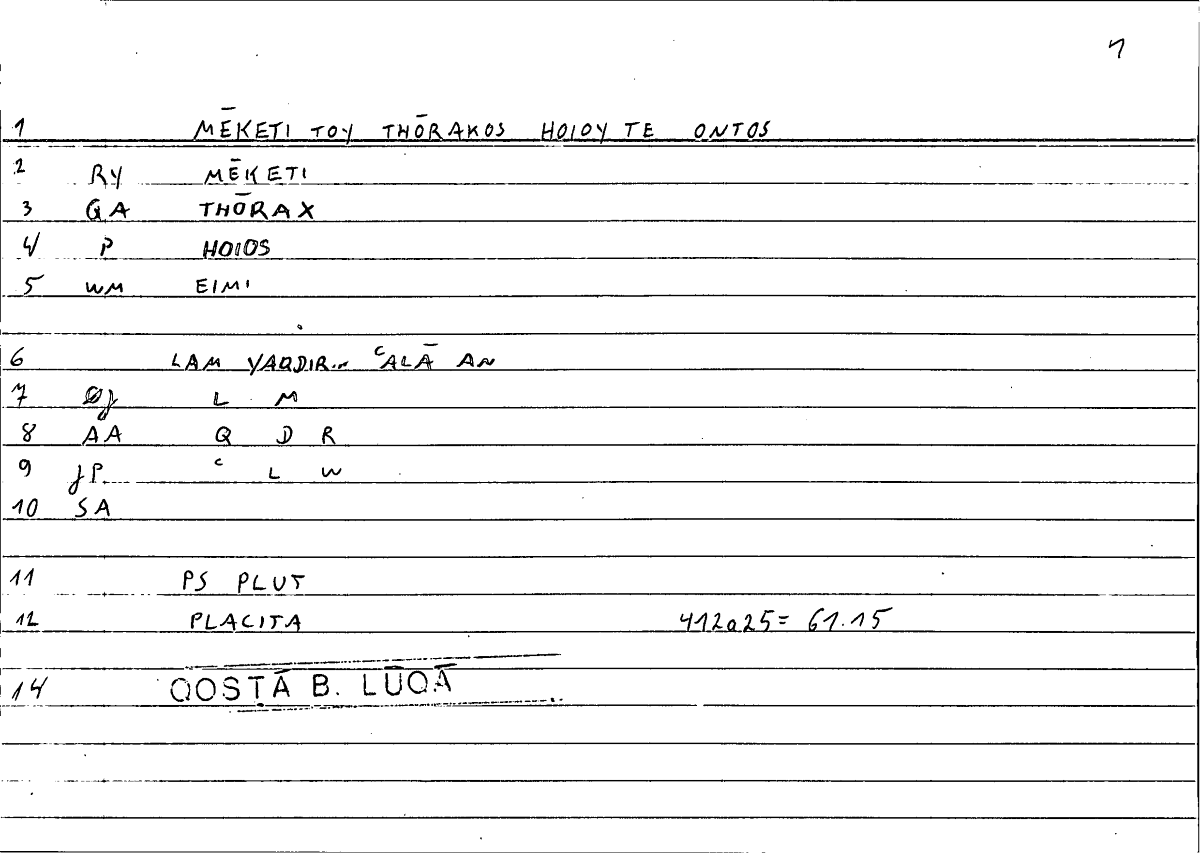 1
1 MĒKETI TOY THŌRAKOS HOIOY TE ONTOS
2 RY MĒKETI
3 QA THŌRAX
4 P HOIOS
5 WM EIMI
6 LAM YAQDIR... ʿALĀ AN
7 L M
8 AA Q D R
9 JP ʿ L W
10 SA
11 PS PLUT
12 PLACITA 412a25= 61.15
14 QOSṬĀ B. LŪQĀ